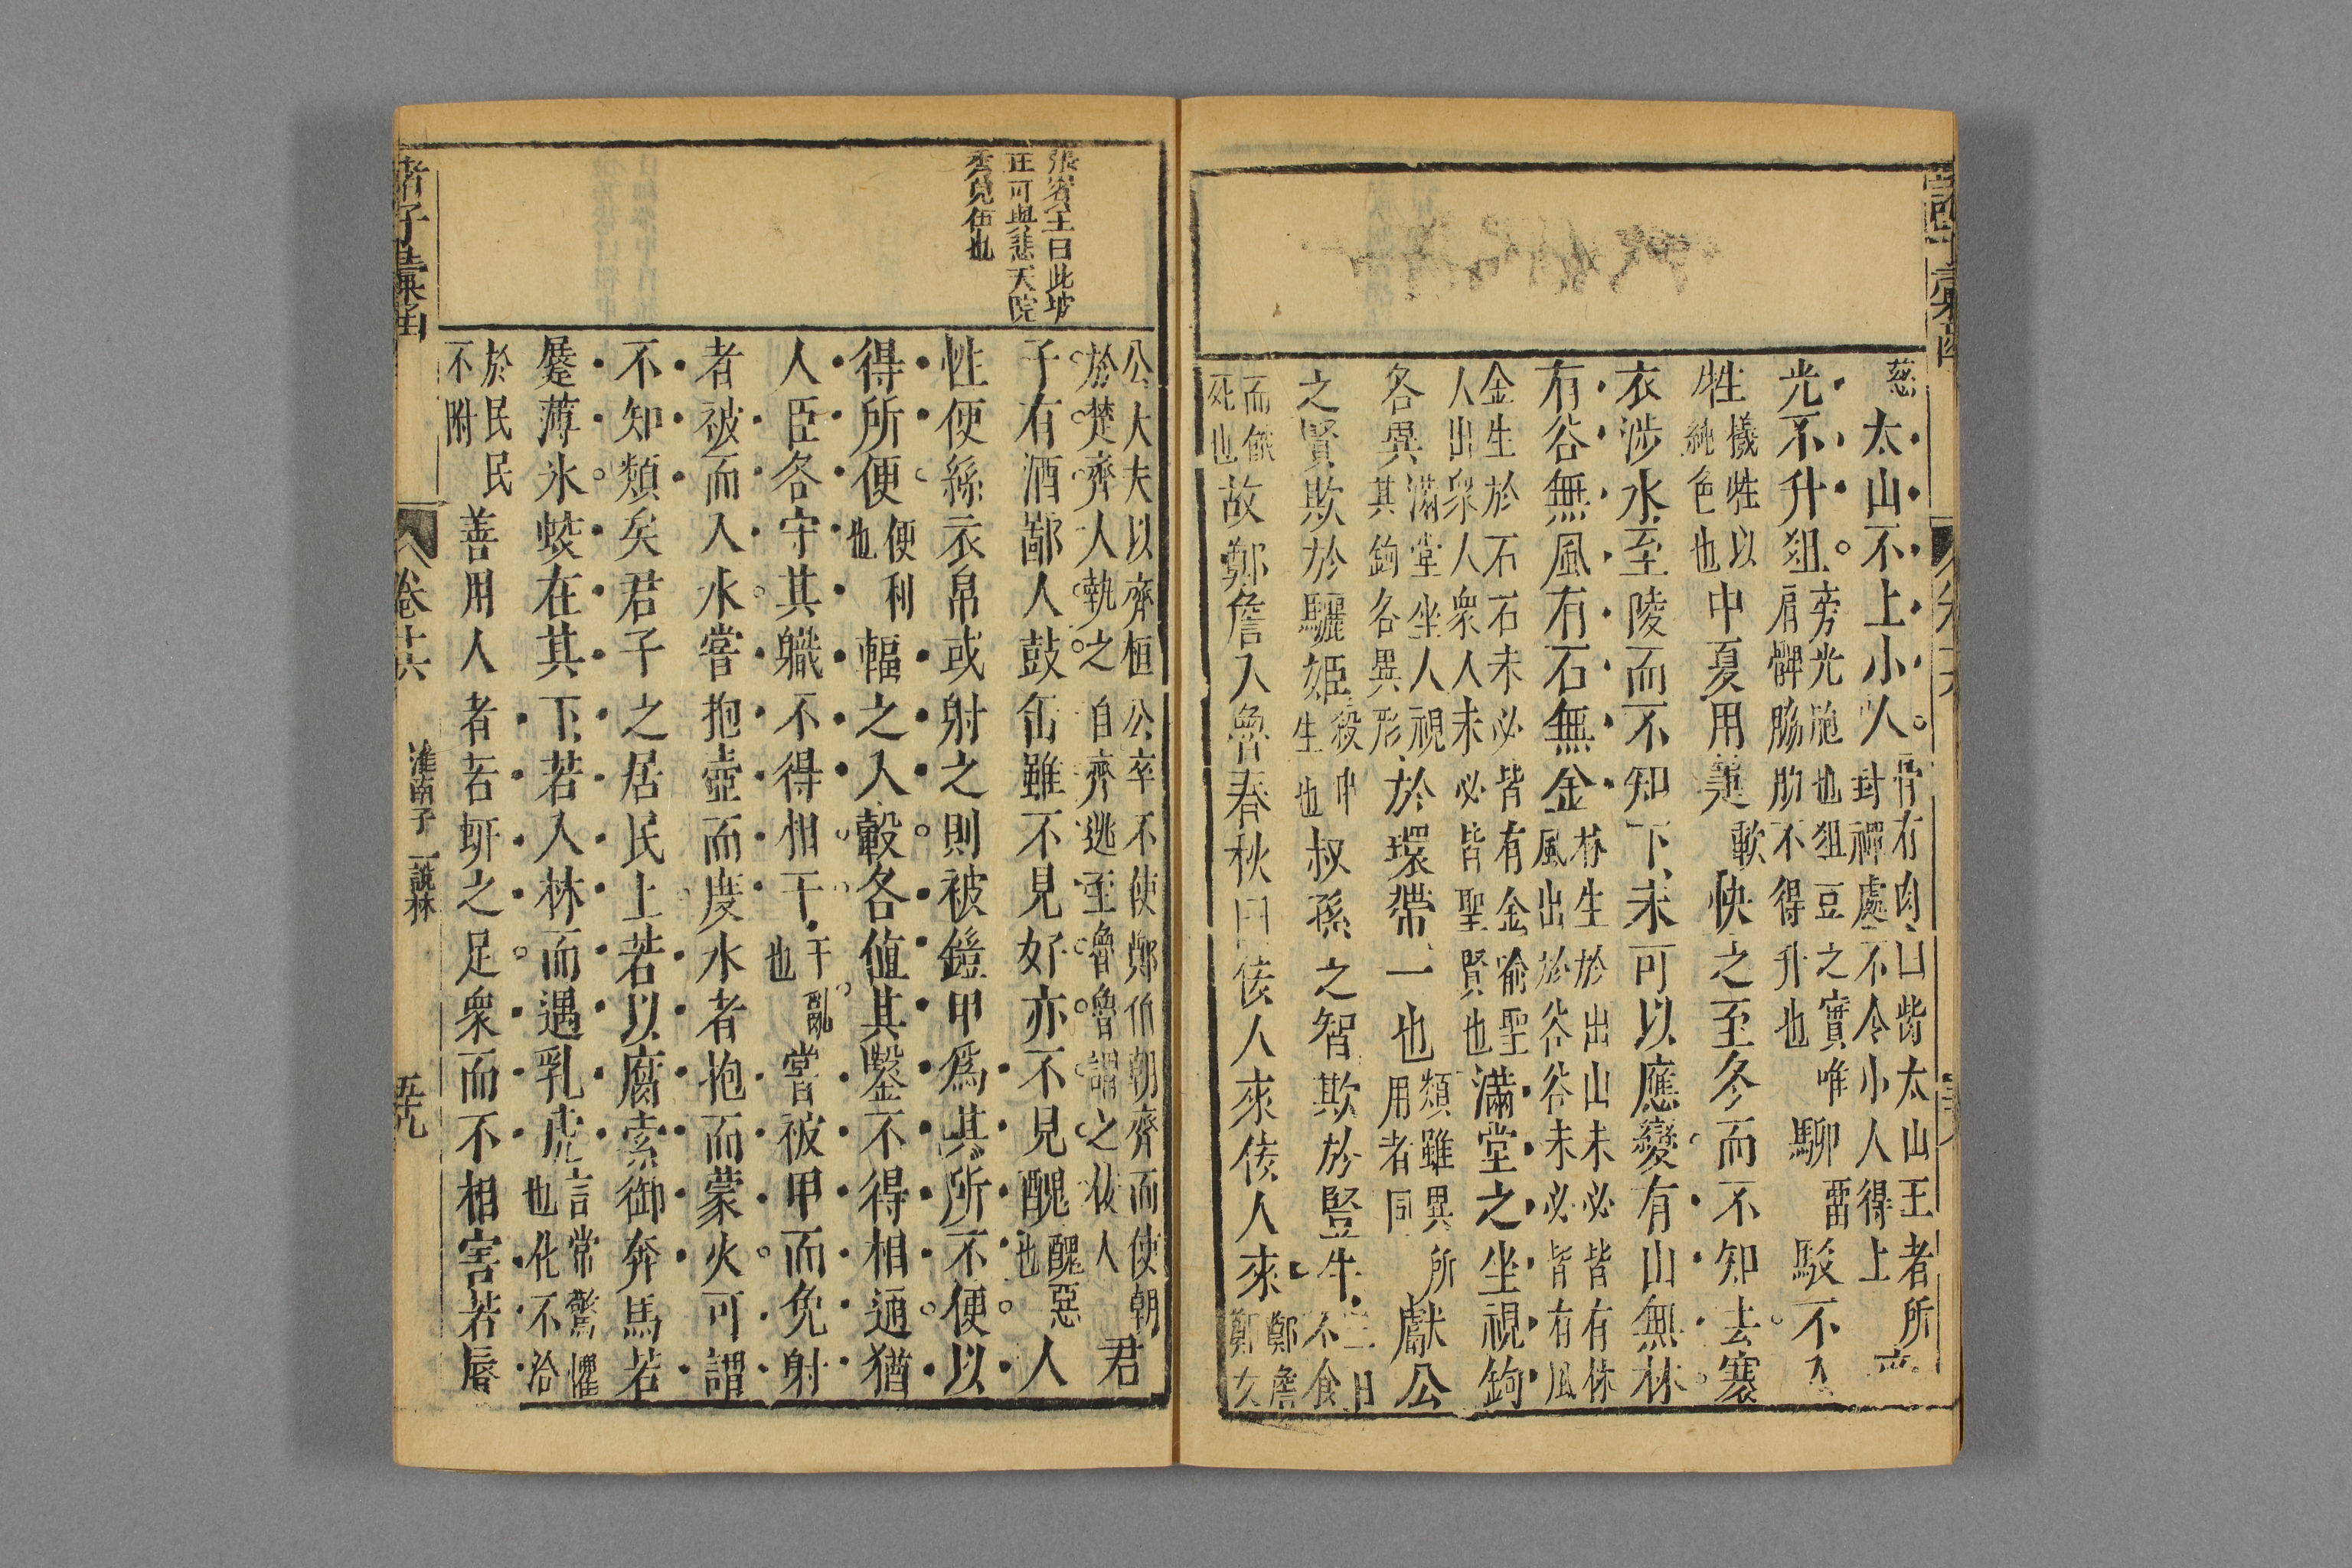 慈 太山不上小人 骨有肉曰皆太山王者所
封禪處不令小人得上
光不升狙 旁光胞也狙豆之實唯
肩髀胁肋不得升也 駵 駮不入
牲 犧牲以
純色也 中夏用箑 軟 快之至冬而不知去褰
衣涉水至陵而不知下未可以應變有山無林
有谷無風有石無金 林生於出山未必皆有林
風出於谷谷未必皆有風
金生於石石未必皆有金喻聖
人出衆人衆人未必皆聖賢也 滿堂之坐視鉤
各異 滿堂坐人視
其鉤各異形 於環帶一也 類雖異所
用者同 獻公
之賢欺於驪姬 殺申
生也 叔孫之智欺於豎牛 三日
不食
而餓
死也 故鄭詹入魯春秋曰佞人來佞人來 鄭詹
鄭文
張賓王曰此坡
正可與悲天院
公大夫以齊桓公卒不使鄭伯朝齊而使朝
於楚齊人執之自齊逃至魯魯謂之佞人 君
子有酒鄙人鼓缶雖不見好亦不見醜 醜惡
也 人
性便絲衣帛或射之則被鎧甲爲其所不便以
得所便 便利
也 輻之入轂各値其鑿不得相通猶
人臣各守其職不得相干 干亂
也 嘗被甲而免射
者被而入水嘗抱壺而度水者抱而蒙火可謂
不知類矣君子之居民上若以腐索御奔馬若
蹍薄氷蛟在其下若入林而遇乳虎 言常驚懼
也化不洽
於民民
不附 善用人者若蚈之足衆而不相害若脣
諸子彙函 卷十六 淮南子 說林 五九